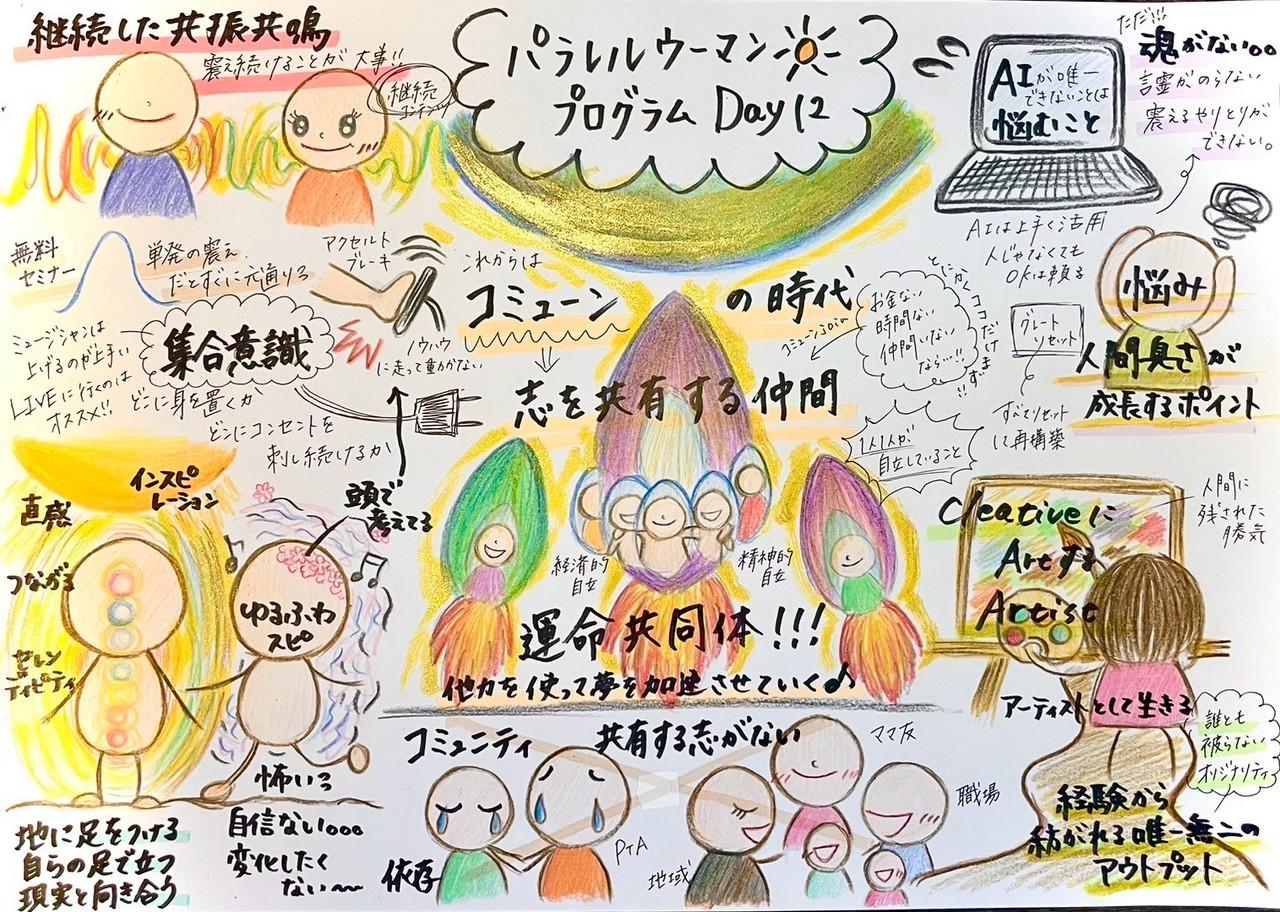 継続した共振共鳴
震え続けることが大事!!
継続
コンテンツ
パラレルウーマン
プログラム Day12
AIが唯一
できないことは
悩むこと
ただ!!!
魂がない。。
言霊がのらない
震えるやりとりが
できない。
無料
セミナー
単発の震え
だとすぐに元通りる
アクセルト
ブレーキ
ノウハウ
に走って動かがない
ミュージシャンは
上げるのが上手い
LIVEに行くのは
オススメ!!
集合意識
どこに身を置くか
どこにコンセントを
刺し続けるか
頭で
考えてる
これからは
コミューン
の時代
志を共有する仲間
とにかくココだけます!!
お金ない
時間ない
仲間いない
なら…!!
1人1人が
自立していること
AIは上手く活用
人じゃなくても
OKは頼る
グレート
リセット
すべてリセット
して再構築
悩み
人間臭さが
成長するポイント
直感
インスピ
レーション
つながる
セレン
ディピティ
ゆるふわ
スピ
地に足をつける
自らの足で立つ
現実と向き合う
怖いっ
自信ない。。。
変化したく
ない〜
経済的
自立
精神的
自立
運命共同体!!!
他力を使って夢を加速させていく♪
コミュニティ
共有する志がない
ママ友
職場
PTA
地域
依存
Creativeに
Artする
Artist
人間に
残された
勝気
アーティストとして生きる
誰とも
被らない
オリジナリティ
経験から
紡がれる唯一無二の
アウトプット